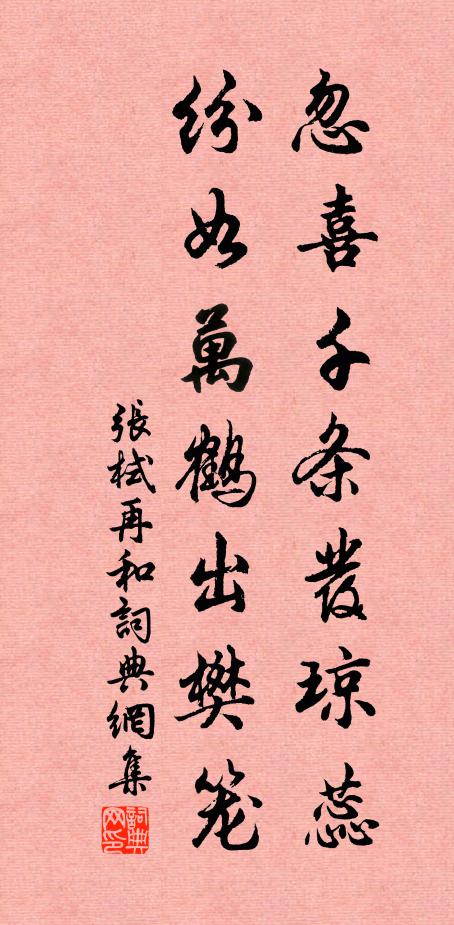 忽喜千条發琼蕊
纷如萬鹤出樊笼
張栻再和詞典網集
詞典网印